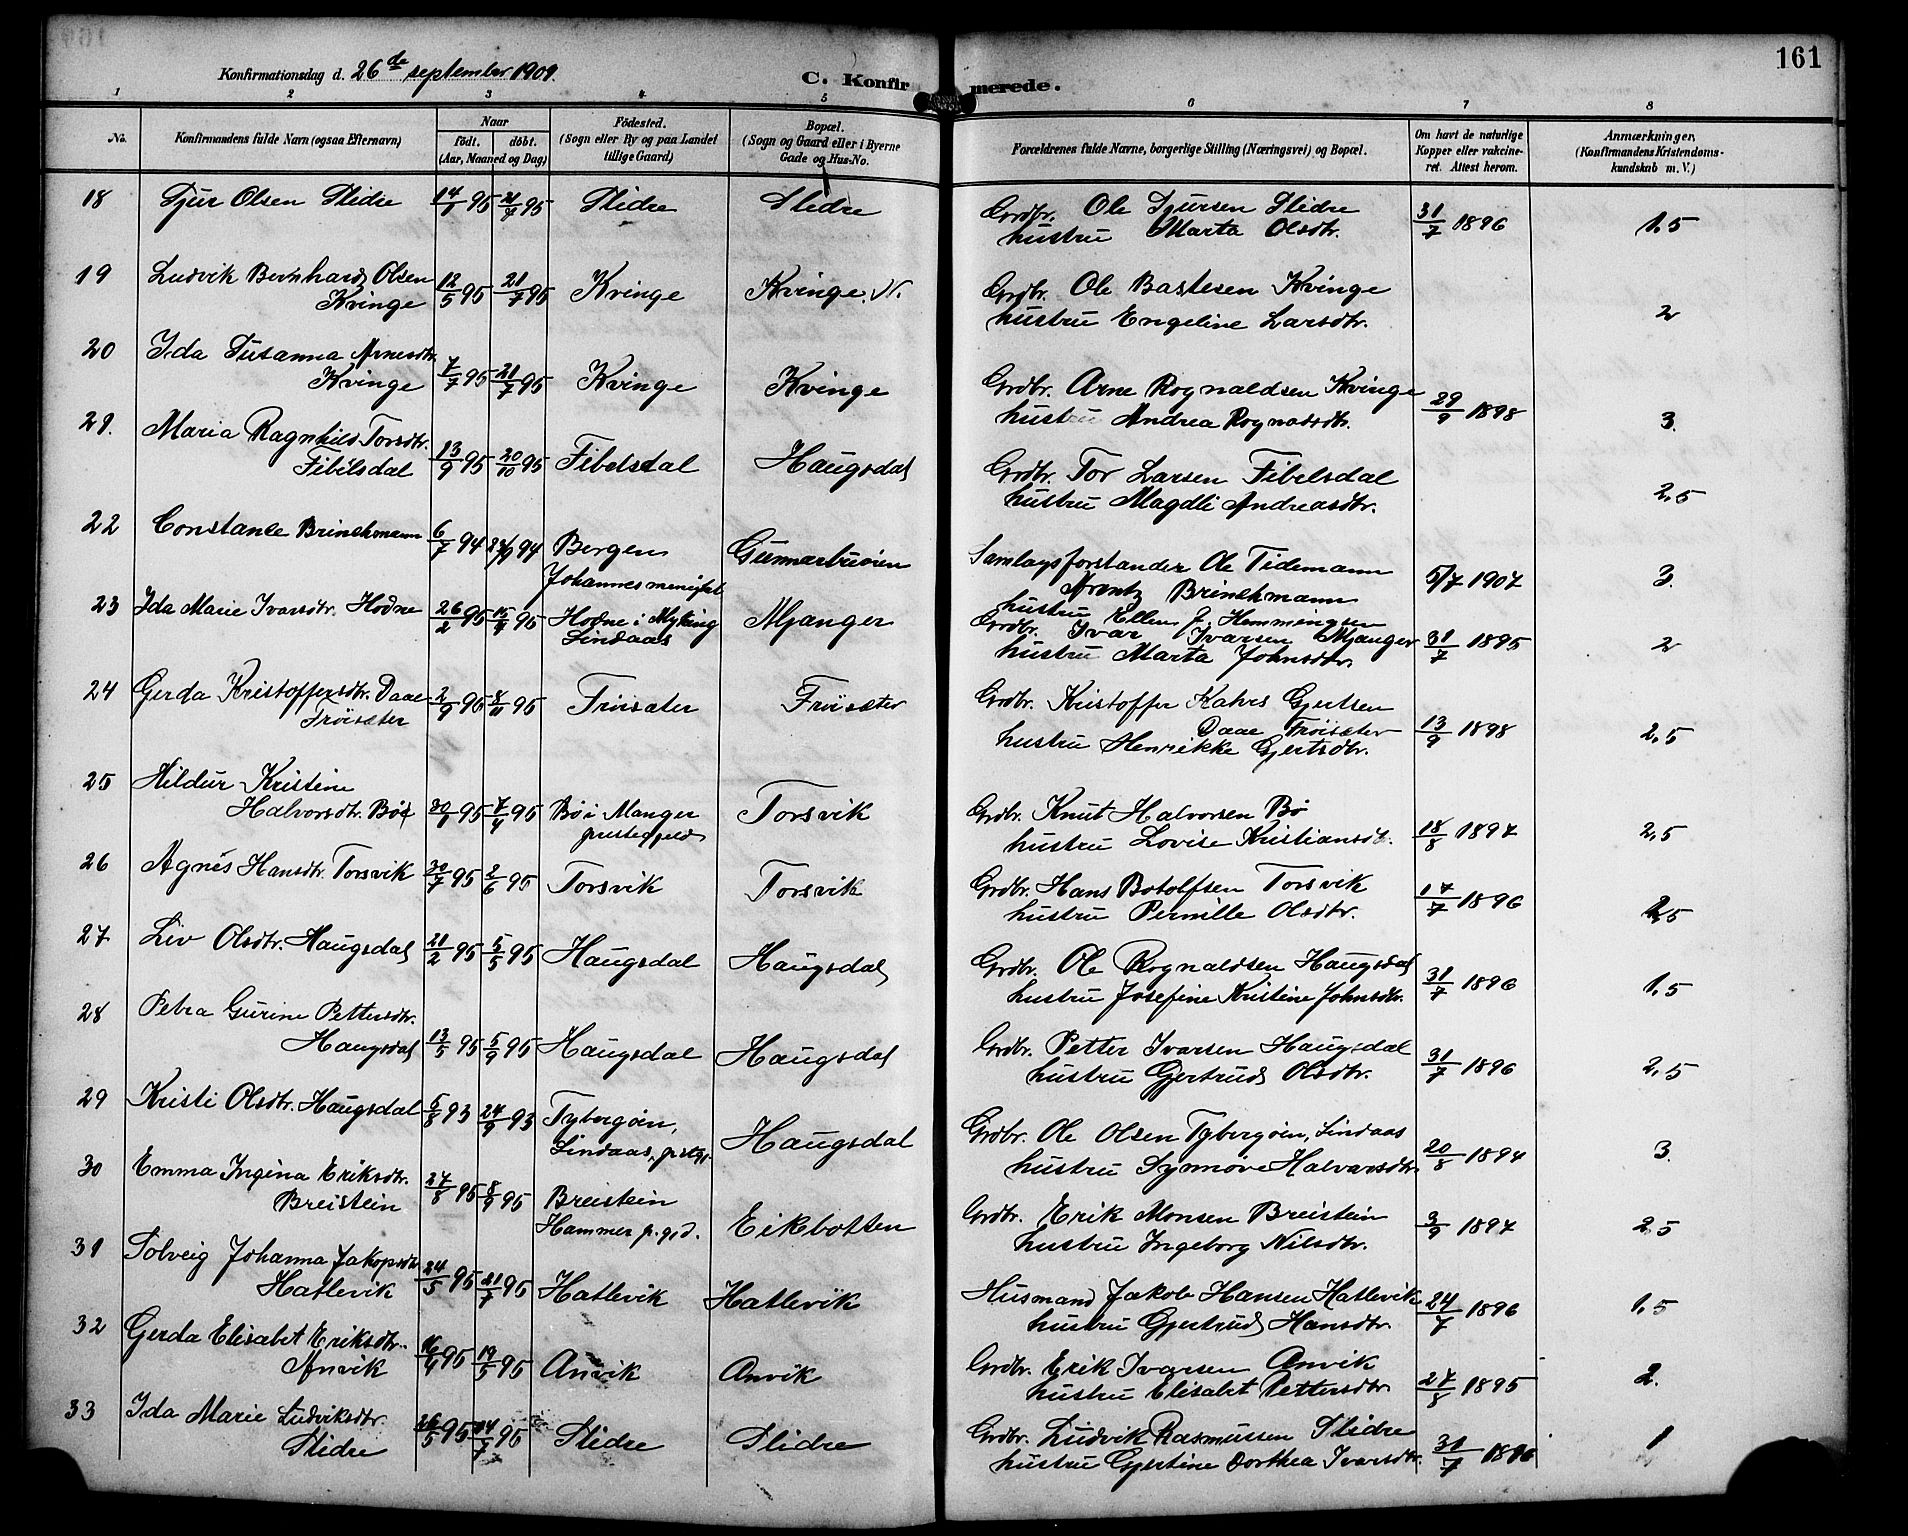 161
Konfirmationsdag d. 26de september 1909.
C. Konfirmerede.
1 2 3 4 5 6 7 8
No. Konfirmandens fulde Navn (ogsaa Efternavn) Naar født. døbt. (Aar, Maaned og Dag) Fødested. (Sogn eller By og paa Landet tillige Gaard) Bopæl. (Sogn og Gaard eller i Byerne Gade og Hus-No. Forældrenes fulde Navne, borgerlige Stilling (Næringsvei) og Bopæl. Om havt de naturlige Kopper eller vakcineret. Attest herom. Anmærkninger. (Konfirmandens Kristendomskundskab m. V.)
18 Sjur Olsen Slidre 95 21/7 95 Slidre Slidre Grdbr. Ole Sjursen Slidre 31/7 1896 1,5
hustru Marta Olsdtr.
19 Ludvik Bernhard Olsen 12/5 95 21/7 95 Kvinge Kvinge. N. Grdbr. Ole Bastesen Kvinge 2
Kvinge hustru Engeline Larsdtr.
20 Ida Susanna Arnesdtr. 7/7 95 21/7 95 Kvinge Kvinge Grdbr. Arne Rognaldsen Kvinge 29/9 1898 3.
Kvinge hustru Andrea Rognadsdtr.
21. Maria Ragnhild Torsdtr. 13/9 95 20/10 95 Fibelsdal Haugsdal Grdbr. Tor Larsen Fibelsdal 2,5
Fibelsdal hustru Magdli Andreasdtr.
22 Constance Brinchmann 6/7 94 94 Bergen Gunnarbuøien Samlagsforstander Ole Tidemann 5/7 1907 3.
Johannes menighet Arentz Brinchmann
hustru Ellen J. Hemmengsen
23 Ida Marie Ivarsdtr. Hodne 26/2 95 15/4 95 Hodne i Myking Mjanger Grdbr. Ivar Ivarsen Mjanger 31/7 1895 2
Lindaas hustru Marta Johnsdtr.
24 Gerda Kristoffersdtr. Daae 2/9 95 95 Frøisæter Frøisæter Grdbr. Kristoffer Kahrs Gjertsen 13/9 1898 2,5
Frøisæter Daae Frøisæter
hustru Henrikke Gjertsdtr.
25 Hildur Kristine
Halvorsdtr. Bø 95 7/4 95 Bø i Manger Torsvik Grdbr. Knut Halvorsen Bø 18/8 1897 2,5
prestegjeld hustru Lovise Kristiansdtr.
26 Agnes Hansdtr. Torsvik 95 2/6 95 Torsvik Torsvik Grdbr. Hans Botolfsen Torsvik 17/7 1896 2,5
hustru Pernille Olsdtr.
27 Liv Olsdtr. Haugsdal 21/2 95 5/5 95 Haugsdal Haugsdal Grdbr. Ole Rognaldsen Haugsdal 31/7 1896 1,5
hustru Josefine Kristine Johnsdtr.
28 Petra Gurine Pettersdtr.
Haugsdal 13/5 95 5/9 95 Haugsdal Haugsdal Grdbr. Petter Ivarsen Haugsdal 31/7 1896 2,5
hustru Gjertrud Olsdtr.
29 Kristi Olsdtr. Haugsdal 5/8 93 24/9 93 Tybergøien, Haugsdal Grdbr. Ole Olsen Tybergøien, Lindaas 20/8 1894 3.
Lindaas, prstgj. hustru Synnøve Halvarsdtr.
30 Emma Ingina Eriksdtr. 27/8 95 8/9 95 Breistein Eikbotten Grdbr. Erik Monsen Breistein 3/9 1897 2,5
Breistein Hammer p. gjd. hustru Ingeborg Nilsdtr.
31 Solveig Johanna Jakopsdtr. 24/5 95 21/7 95 Hatlevik Hatlevik Husmand Jakob Hansen Hatlevik 24/7 1896 1,5
Hatlevik hustru Gjertrud Hansdtr.
32 Gerda Elisabet Eriksdtr. 16/4 95 19/5 95 Anvik Anvik Grdbr. Erik Ivarsen Anvik 27/8 1895 2.
Anvik hustru Elisabet Pettersdtr
33 Ida Marie Ludviksdtr. 26/5 95 14/7 95 Slidre Slidre Grdbr. Ludvik Rasmussen Slidre 31/7 1896 1
Slidre hustru Gjertine Dorthea Ivarsdtr.